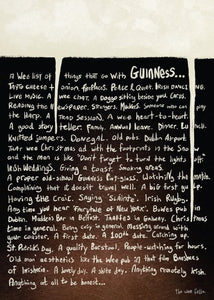 A Wee list of things that go with GUINNESS...
Tayto cheese & onion. Funerals. Peace & Quiet. Irish dancing.
Live music. A wee chat. A doggo sitting beside you. Craic.
Reading the newspaper. Singers. Madness. Someone who can play
the Harp. A Trad session. A wee heart-to-heart.
A good story teller. Family. Annual leave. Dinner. Lunch.
Knitted jumpers. Donegal. Old pubs. Dublin Airport.
That wee Christmas ad with the footprints in the snow
and the man is like "Don't forget to turn the lights off"
Irish Weddings. Giving a toast. Smoking areas.
A perfect old-school Guinness t-shirt.
Complaining that it doesn't travel well. A big first gulp.
Having the Craic. Saying 'Sláinte'. Irish Rugby.
Anytime you hear 'Fairytale of New York'. Bowes Pub in
Dublin. Madden's Bar in Belfast. Taaffes in Galway. Christmas
time in general. Being cosy in general. Messing around with
your coaster. A first date. A 100th date. Catching up.
St. Patrick's Day. A quality barstool. People-watching for hours.
'Old man' aesthetics like the wee pub in that film Banshees
of Inisherin. A lovely day. A shite day. Anything remotely Irish.
Anything at all to be honest...